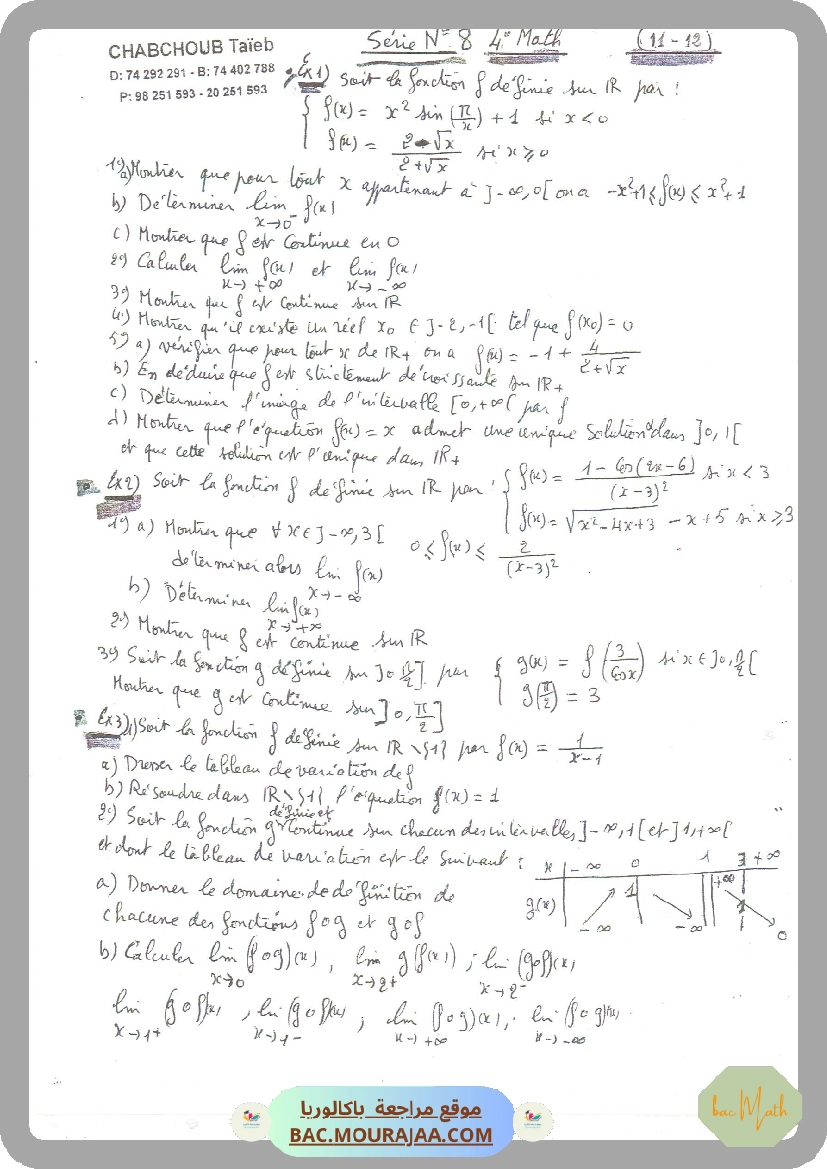 CHABCHOUB Taïeb
D: 74 292 291 - B: 74 402 788
P: 98 251 593 - 20 251 593
Série N° 8 4° Math (11-12)
Ex1) Soit la fonction f définie sur IR par :
{ f(x) = x² sin(π/x) + 1 si x < 0
f(x) = (2-√x)/(2+√x) si x ≥ 0
1°) a) Montrer que pour tout x appartenant à ]-∞,0[ on a -x²+1 ≤ f(x) ≤ x²+1
b) Déterminer lim x→0⁻ f(x)
c) Montrer que f est continue en 0
2°) Calculer lim x→+∞ f(x) et lim x→-∞ f(x)
3°) Montrer que f est continue sur IR
4°) Montrer qu'il existe un réel x₀ ∈ ]-2,-1[ tel que f(x₀) = 0
5°) a) vérifier que pour tout x de IR+ on a f(x) = -1 + 4/(2+√x)
b) En déduire que f est strictement décroissante sur IR+
c) Déterminer l'image de l'intervalle [0,+∞[ par f
d) Montrer que l'équation f(x) = x admet une unique solution α dans ]0,1[
et que cette solution est l'unique dans IR+
Ex2) Soit la fonction f définie sur IR par : { f(x) = (1-Cos(2x-6))/(x-3)² si x < 3
f(x) = √(x²-4x+3) - x + 5 si x ≥ 3
1°) a) Montrer que ∀ x ∈ ]-∞,3[ 0 ≤ f(x) ≤ 2/(x-3)²
déterminer alors lim x→-∞ f(x)
b) Déterminer lim x→+∞ f(x)
2°) Montrer que f est continue sur IR
3°) Soit la fonction g définie sur ]0,π/2] par { g(x) = f(3/Cosx) si x ∈ ]0,π/2[
g(π/2) = 3
Montrer que g est continue sur ]0,π/2]
Ex3) 1) Soit la fonction f définie sur IR\{1} par f(x) = 1/(x-1)
a) Dresser le tableau de variation de f
b) Résoudre dans IR\{1} l'équation f(x) = 1
2°) Soit la fonction g définie et continue sur chacun des intervalles, ]-∞,1[ et ]1,+∞[
et dont le tableau de variation est le suivant :
x -∞ 0 1 3 +∞
g(x) -∞ 1 -∞ +∞ 1 0
a) Donner le domaine de définition de
chacune des fonctions fog et gof
b) Calculer lim x→0 (fog)(x), lim x→2+ g(f(x)) ; lim x→2⁻ (gof)(x)
lim x→1+ (gof)(x), lim x→1- (gof)(x) ; lim x→+∞ (fog)(x), lim x→-∞ (fog)(x)
موقع مراجعة باكالوريا
BAC.MOURAJAA.COM
bac Math